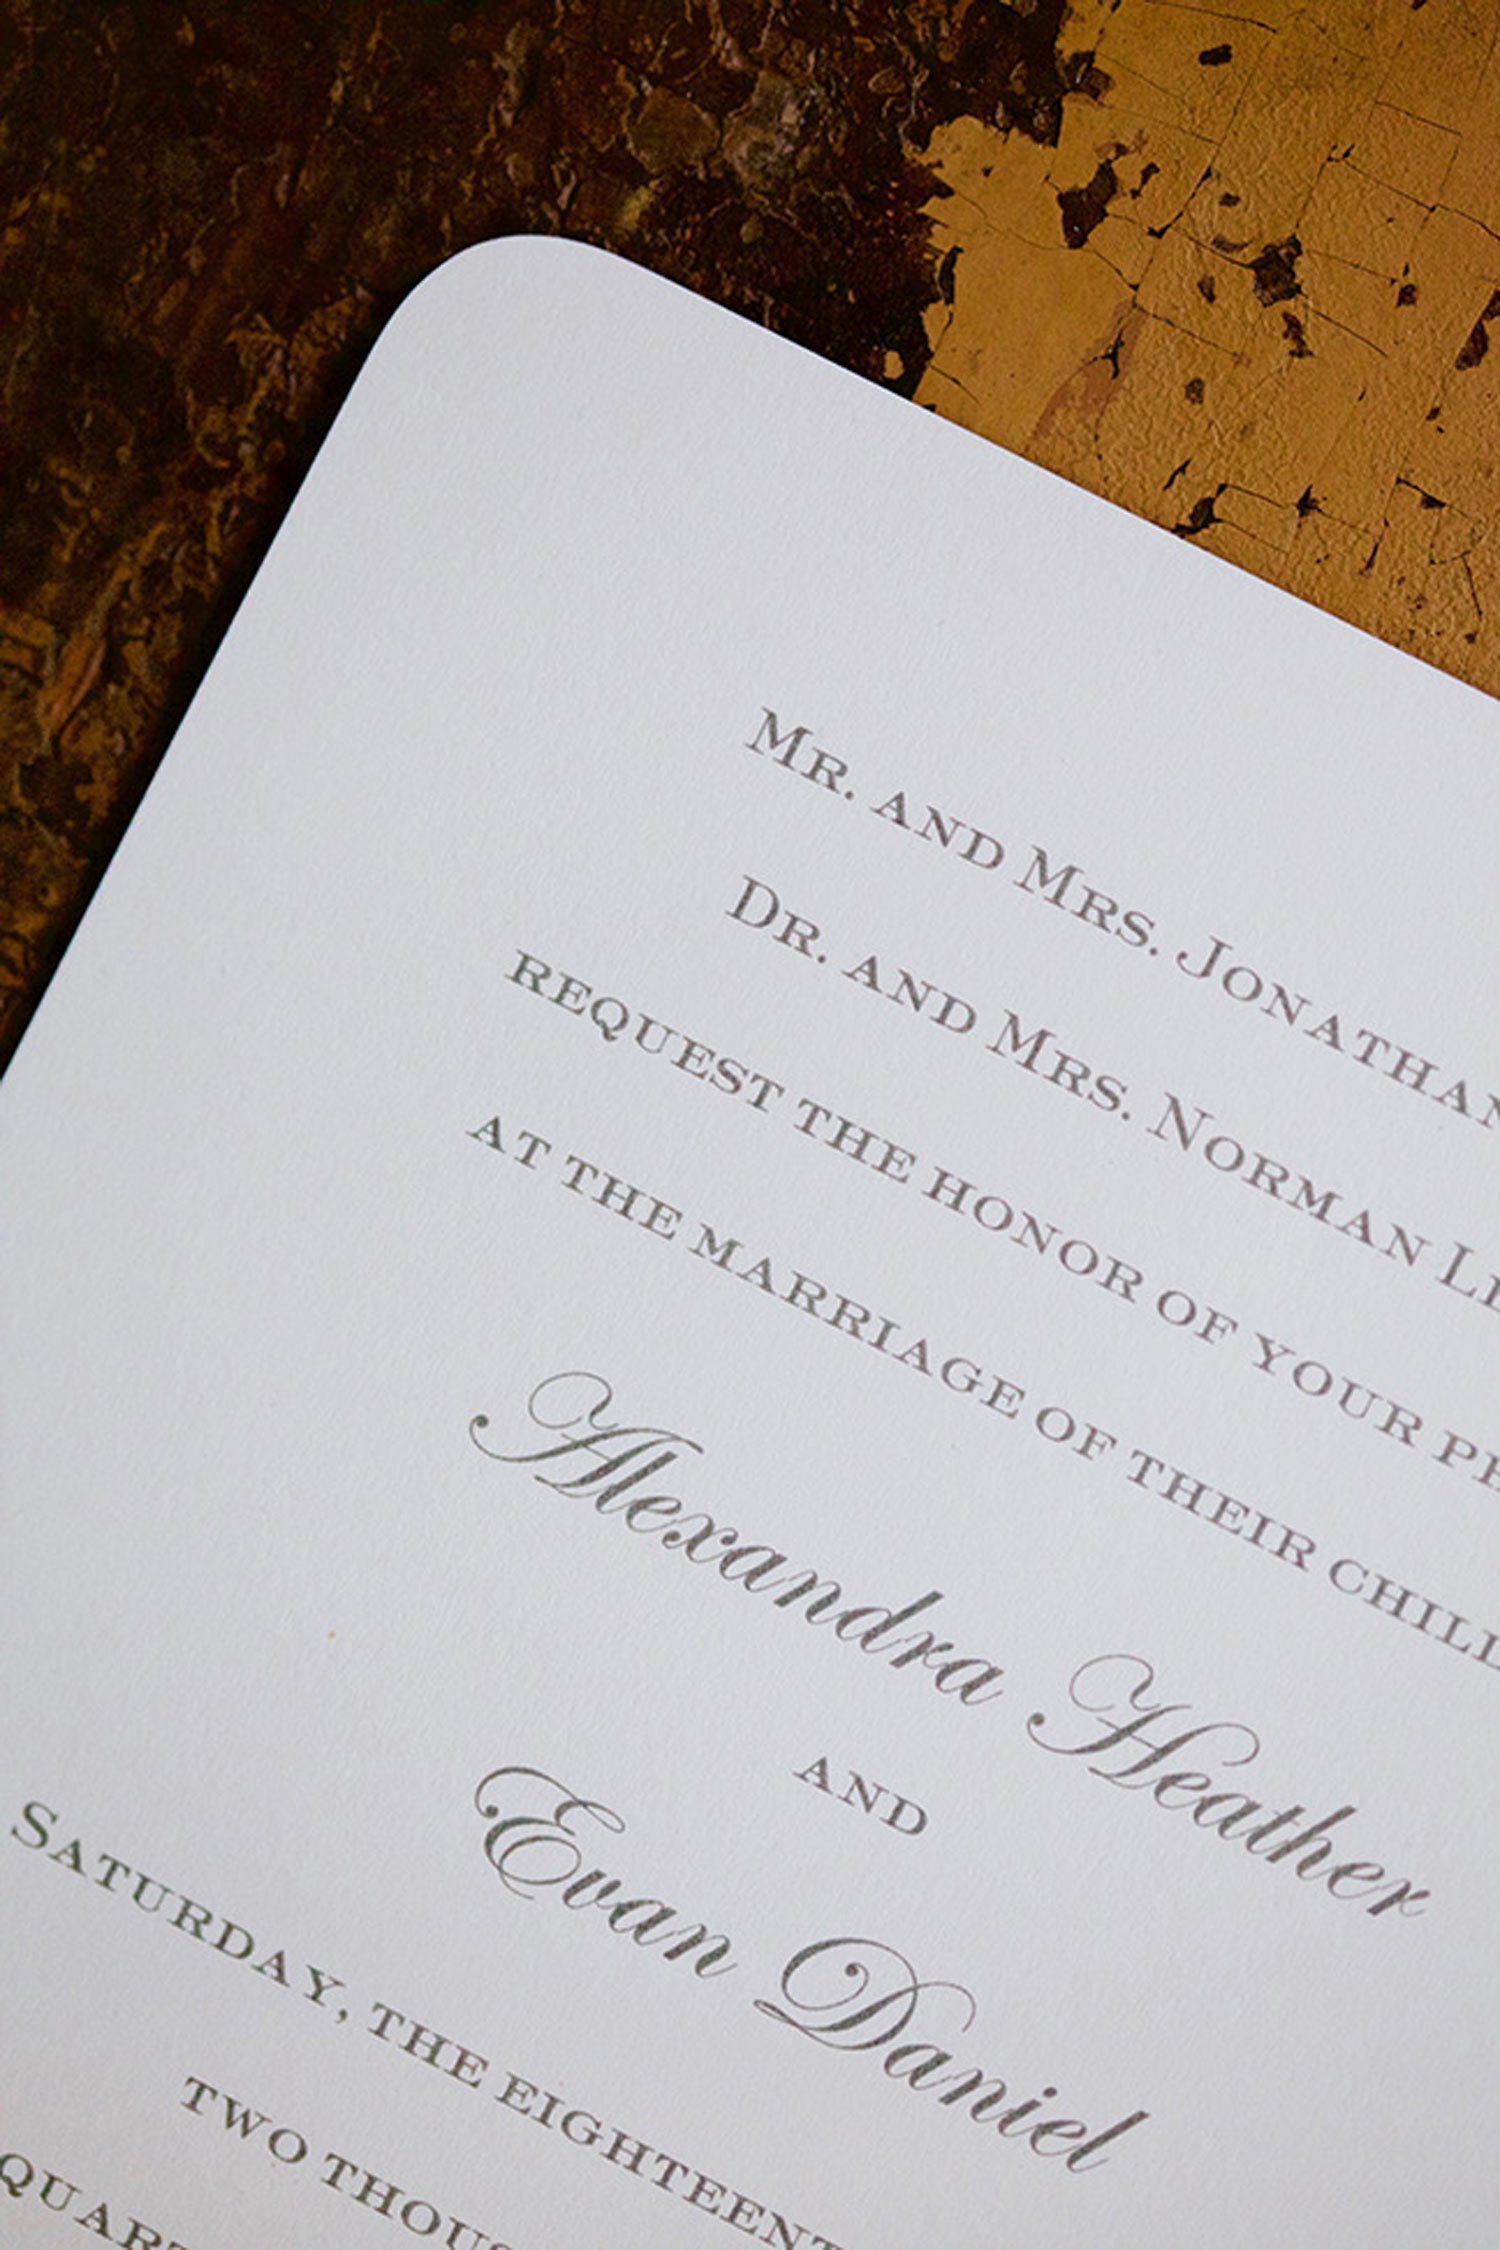 Mr. and Mrs. Jonathan
Dr. and Mrs. Norman
request the honor of your
at the marriage of their
Alexandra Heather
and
Evan Daniel
Saturday, the
two